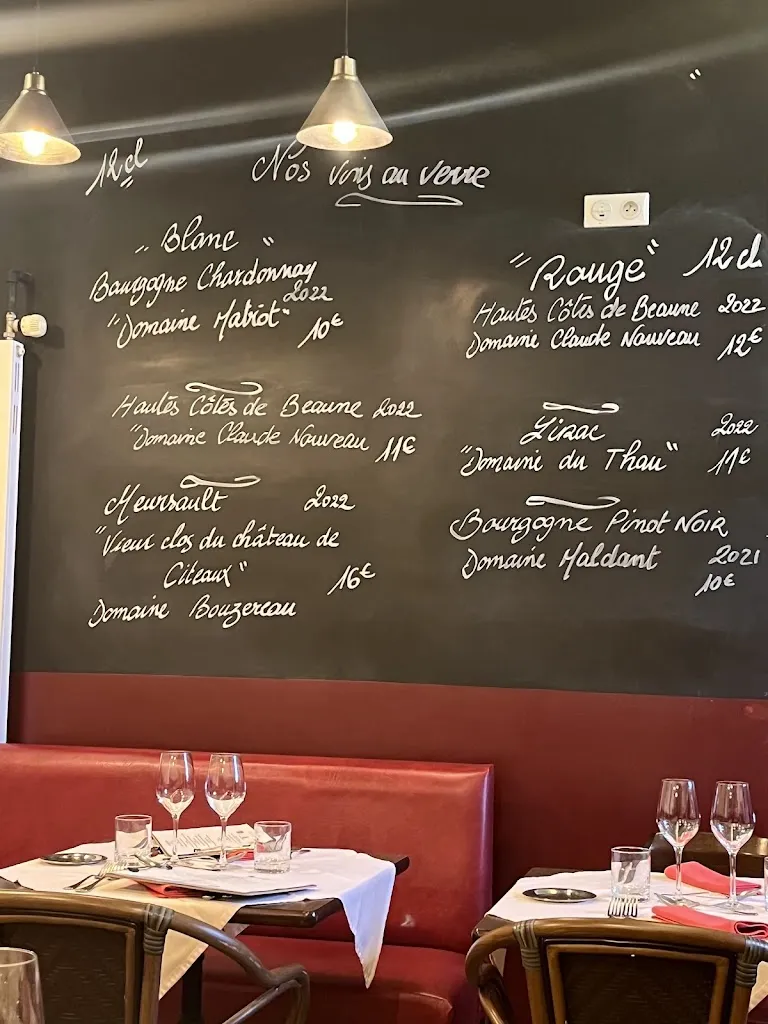 12cl
Nos vins au verre
"Blanc"
Bourgogne Chardonnay
2022
"Domaine Matrot"
10€
Hautes Côtes de Beaune 2022
"Domaine Claude Nouveau 11€
Meursault 2022
"Vieux clos du château de
Citeaux" 16€
Domaine Bouzereau
"Rouge" 12cl
Hautes Côtes de Beaune 2022
Domaine Claude Nouveau 12€
Lirac 2022
"Domaine du Thau" 11€
Bourgogne Pinot Noir
Domaine Maldant 2021
10€